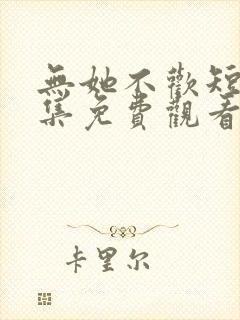 無她不歡短
集免費觀看
卡里尔